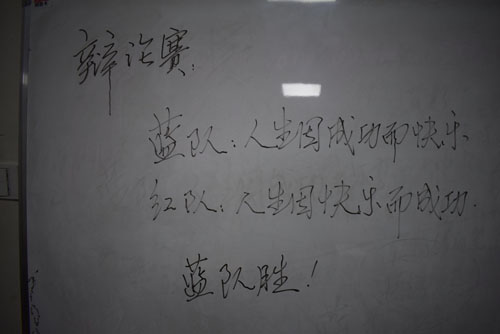 辩论赛:
蓝队:人生因成功而快乐
红队:人生因快乐而成功.
蓝队胜!